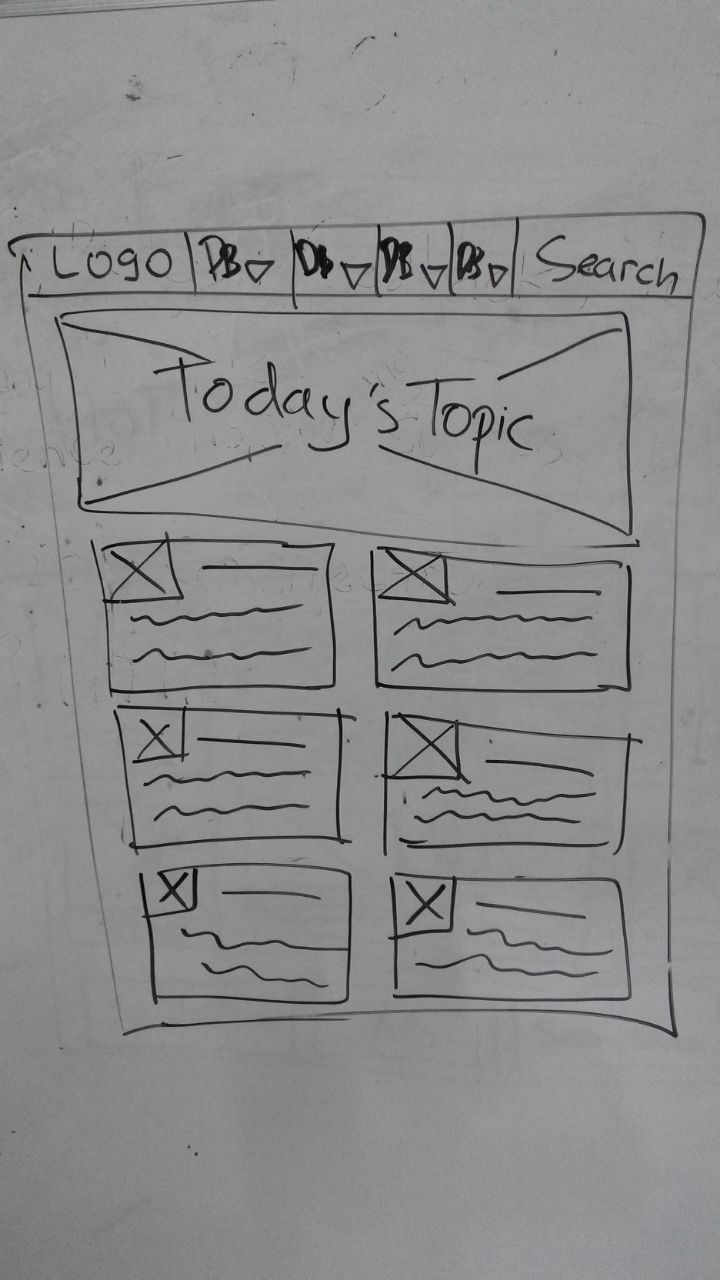 Logo DB DB DB DB Search
Today's Topic